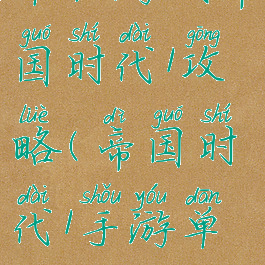 guó shí dài gōng
国时代/攻
lüè dì guó shí
略(帝国时
dài shǒu yóu dān
代/手游单